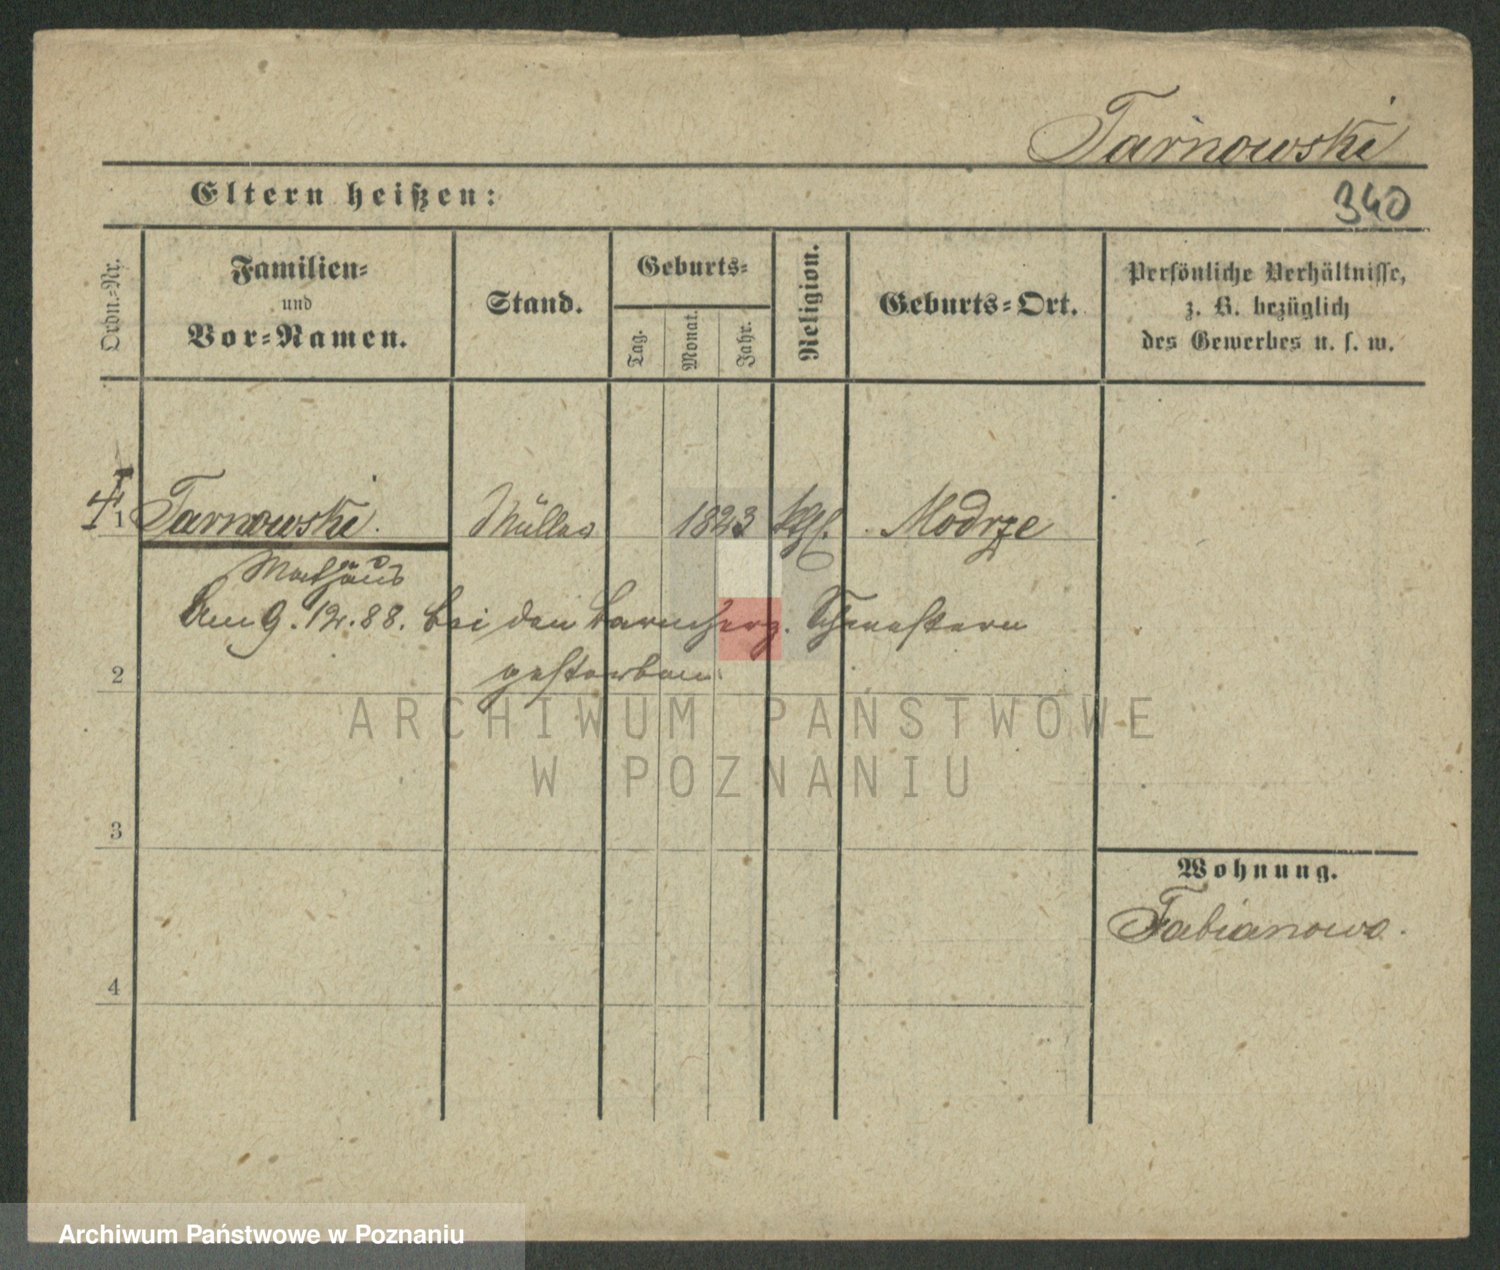 Tarnowski
Eltern heißen:
340
Ordn.-Nr.
Familien-
und
Vor-Namen.
Stand.
Geburts-
Tag.
Monat.
Jahr.
Religion.
Geburts-Ort.
Persönliche Verhältnisse,
z. B. bezüglich
des Gewerbes u. s. w.
1 Tarnowski. Müller 1823 kth. Modrze
Mathäus
Am 9. 12. 88. bei den barmherz. Schwestern
gestorben.
2
ARCHIWUM PAŃSTWOWE
W POZNANIU
3
Wohnung.
Fabianowo.
4
Archiwum Państwowe w Poznaniu